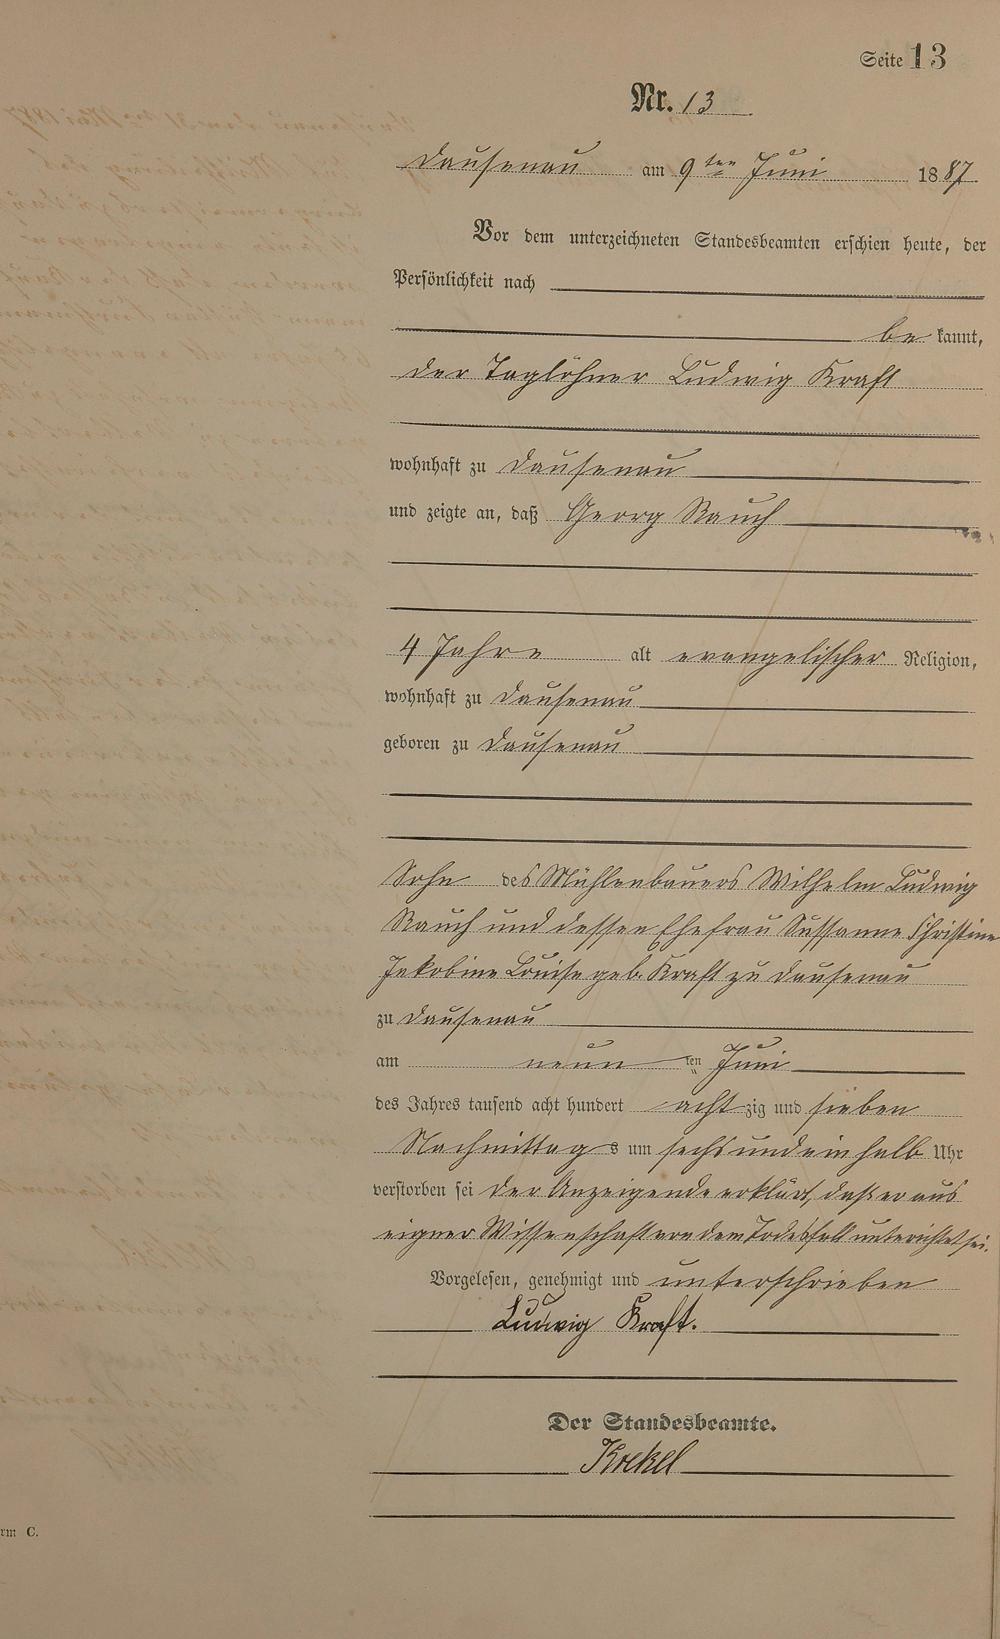 Seite 13
Nr. 13
Dausenau am 9ten Juni 1887
Vor dem unterzeichneten Standesbeamten erschien heute, der
Persönlichkeit nach
bekannt,
der Taglöhner Ludwig Kraft
wohnhaft zu Dausenau
und zeigte an, daß Georg Rauch
4 Jahre alt evangelischer Religion,
wohnhaft zu Dausenau
geboren zu Dausenau
Sohn des Mühlenbauers Wilhelm Ludwig
Rauch und dessen Ehefrau Sussanne Christine
Jakobine Louise geb. Kraft zu Dausenau
zu Dausenau
am neun ten Juni
des Jahres tausend acht hundert achtzig und sieben
Nachmittags um sechs und ein halb Uhr
verstorben sei der Anzeigende erklärt, daß er aus
eigner Wissenschaft von dem Todesfall unterichtet sei.
Vorgelesen, genehmigt und unterschrieben
Ludwig Kraft.
Der Standesbeamte.
Krekel
rm C.